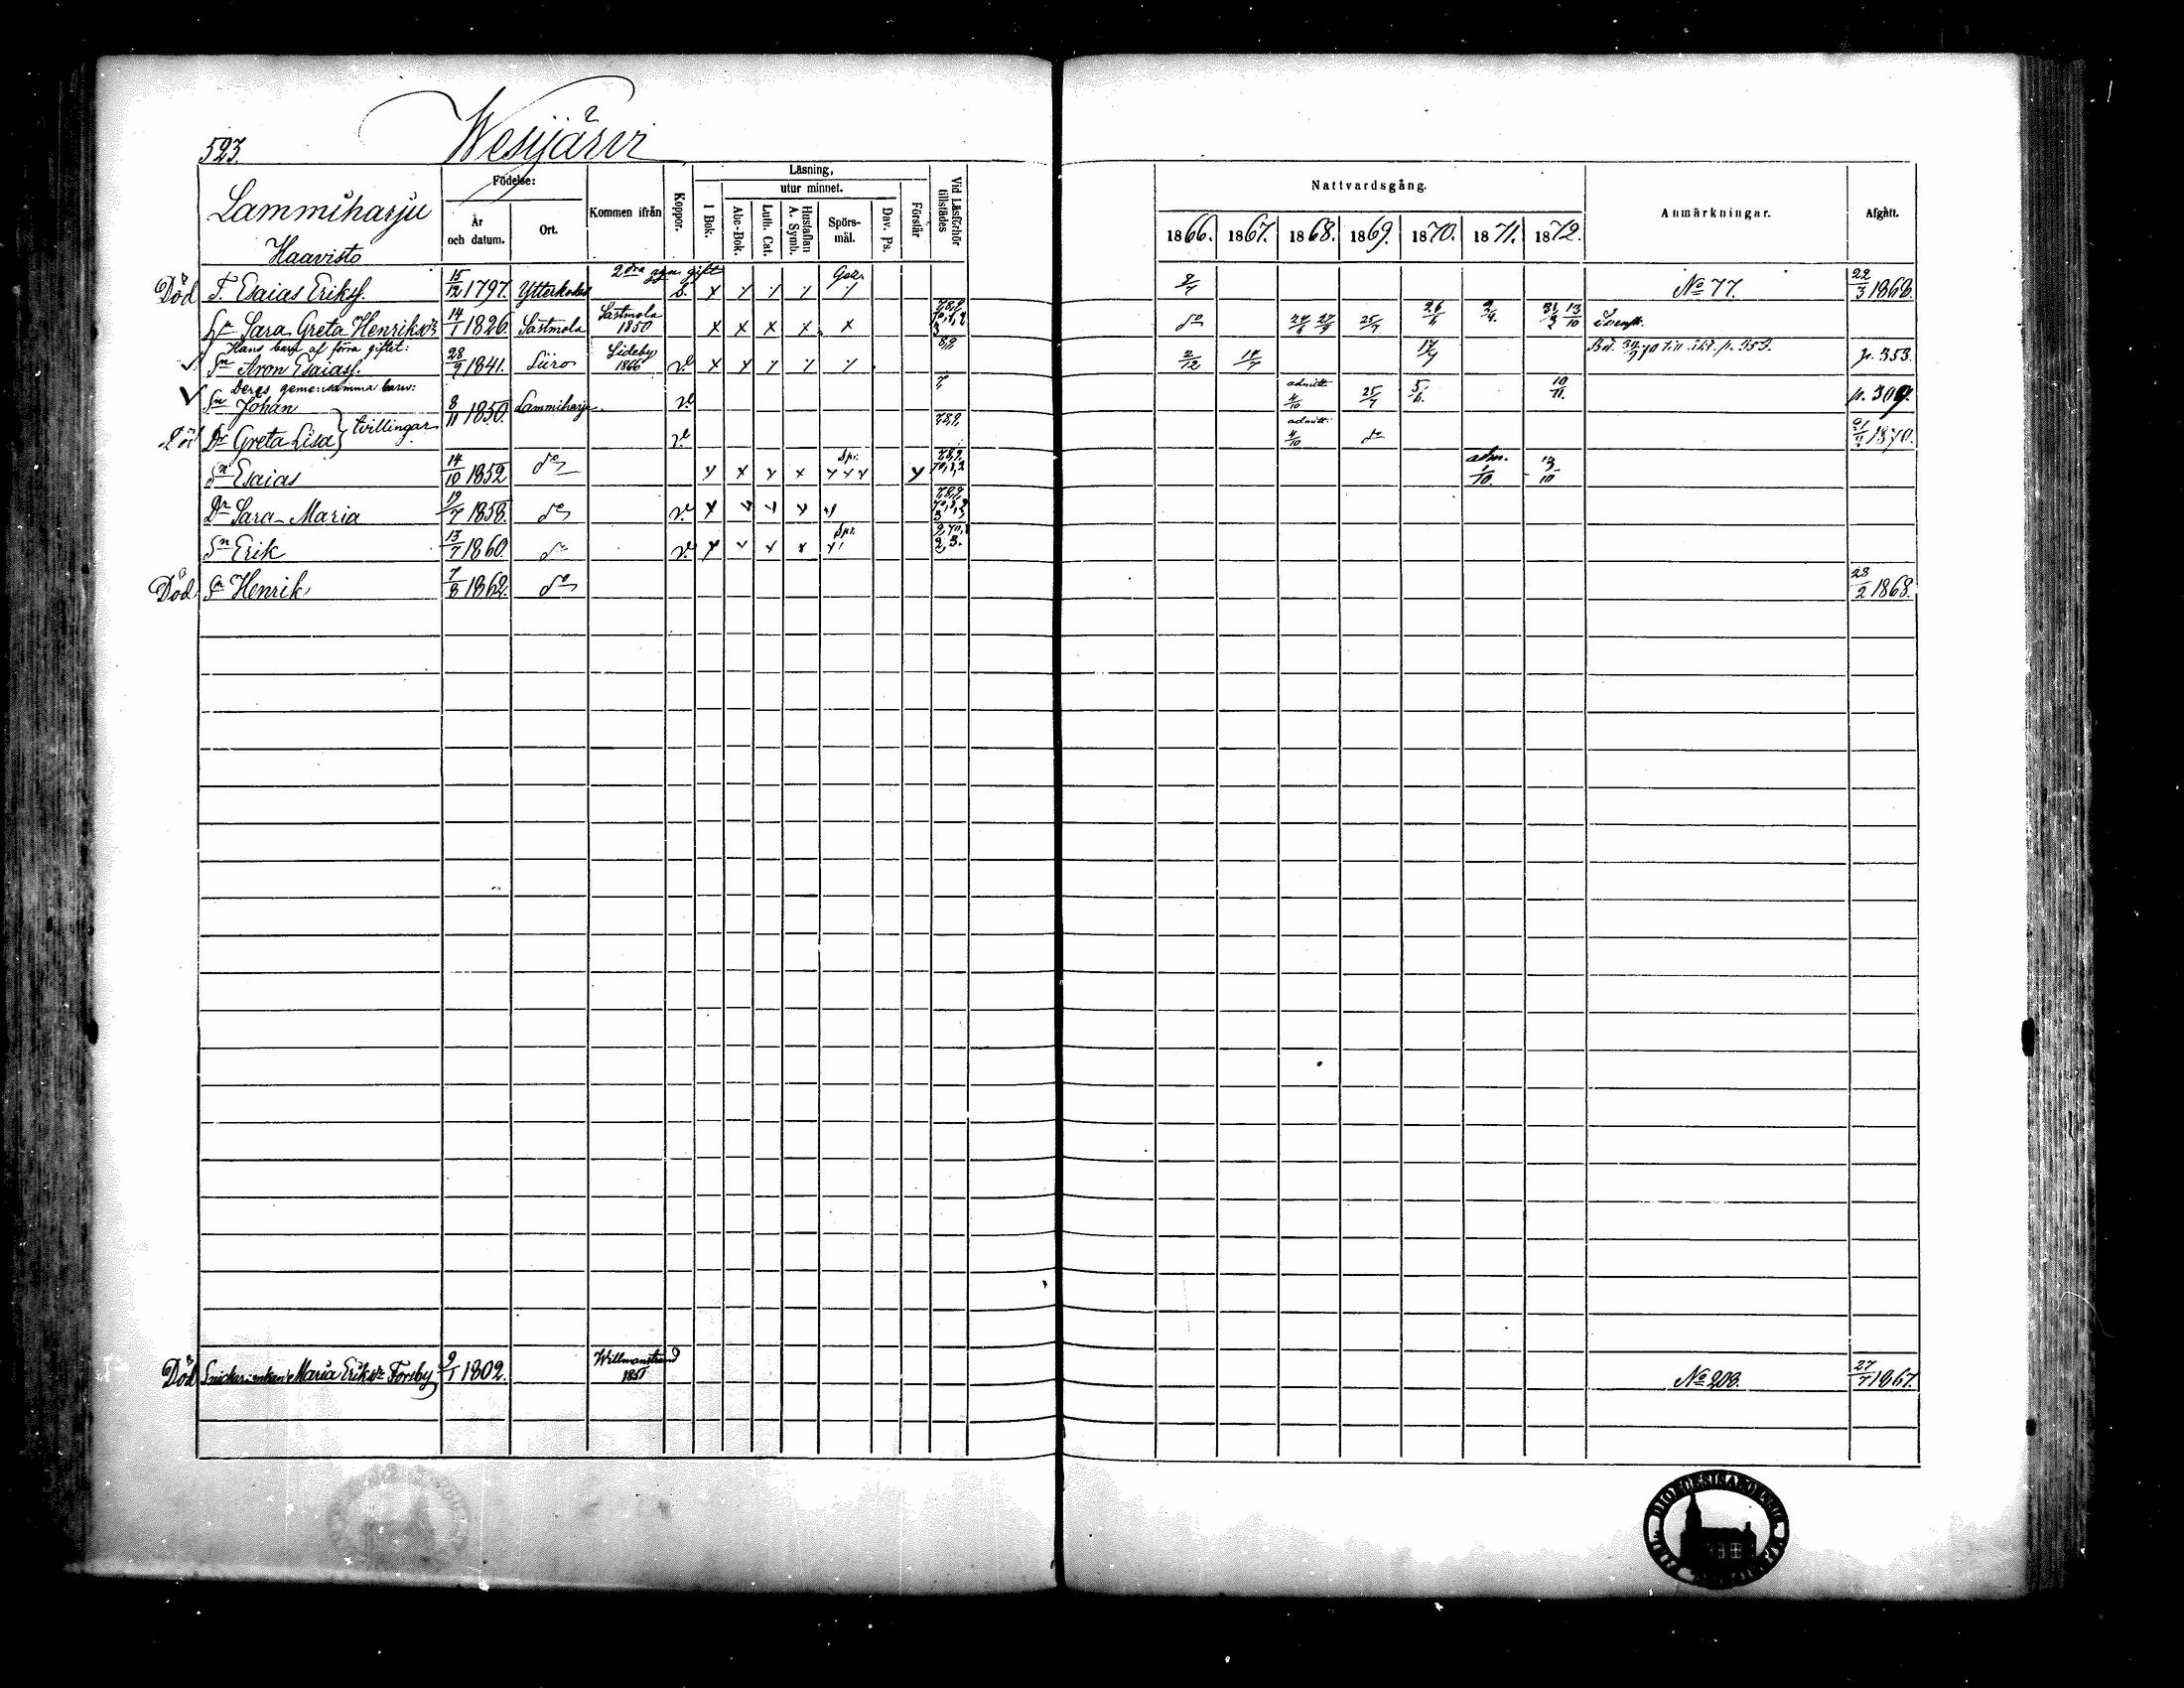 523.
Wesijärvi
Lammiharju
Haavisto
Födelse:
År och datum.
Ort.
Kommen ifrån
Koppor.
Läsning,
utur minnet.
I Bok.
Abc-Bok.
Luth. Cat.
Hustaflan A. Symb.
Spörsmål.
Dav. Ps.
Förstår
Vid Läsförhör tillstädes
Nattvardsgång.
1866. 1867. 1868. 1869. 1870. 1871. 1872.
Anmärkningar.
Afgått.
2dra ggn gift
Död T. Esaias Erikss. 15/12 1797. No 77. 22/3 1868.
Sara Greta Henriksdr 14/1 1826. Sastmola Sastmola 1850 x x x x x do 25/7
Hans barn af förra giftet:
Sn Aron Esaiass. 28/9 1841. Siiro Sideby 1866 v. x x 2/12 14/7 17/7 p. 353. p. 353.
Deras gemensamma barn:
Sn Johan 8/11 1850. Lammiharju v. admitt. 4/10 25/7 10/11 p. 309.
tvillingar
Död Dr Greta Lisa v. 7,8,9, admitt. 4/10 do 1870.
Sn Esaias 14/10 1852 do x x x x Spr. 7,8,9, 70,1,2 adm. 1/10 13/10
Dr Sara Maria 19/7 1858. do v. x x x x 7,8,9,
Sn Erik 13/7 1860. do v. x x x x Spr. 9,70,1 2,3.
Död Sn Henrik 7/8 1862. do 28/2 1868.
Död Snickarenkan Maria Eriksdr Forsby 9/1 1802. Willmanstrand 1851 No 208. 27/7 1867.